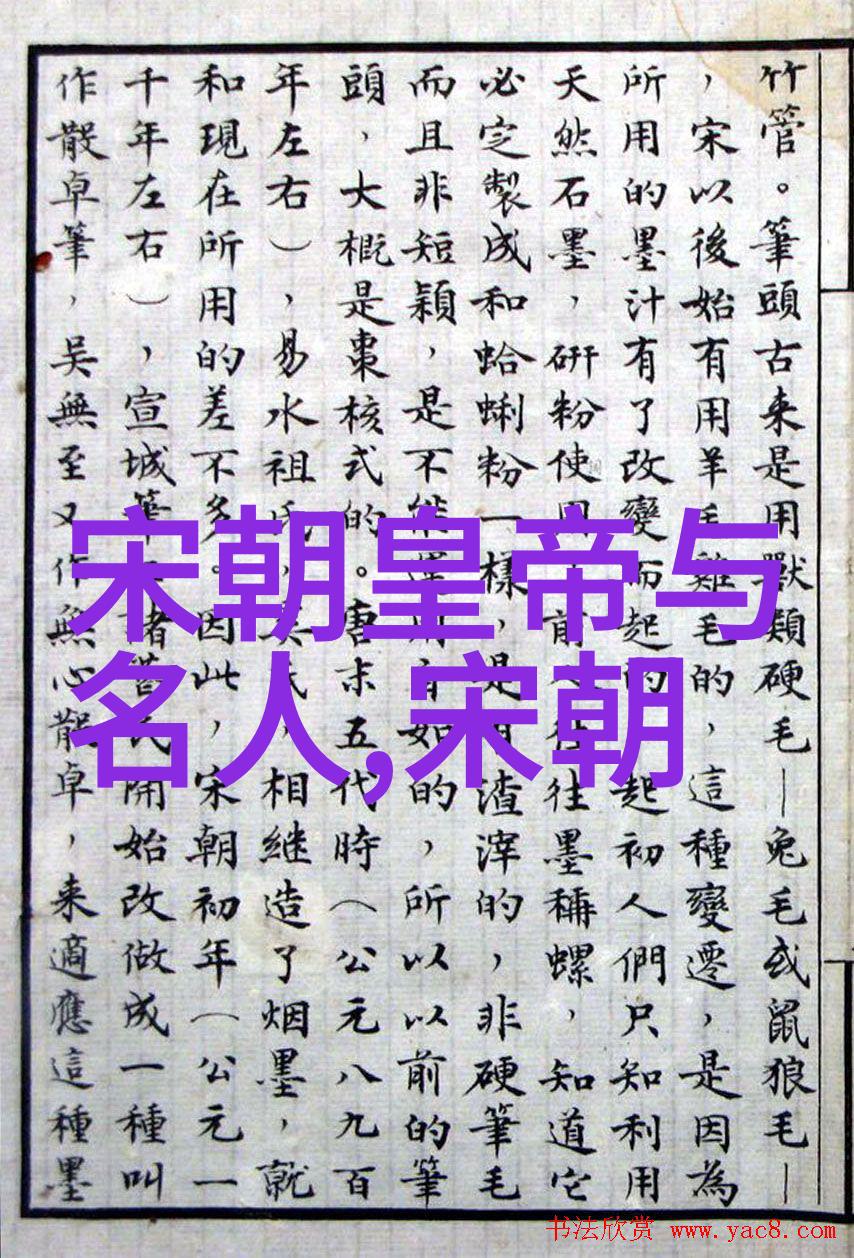 竹管。筆頭古来是用獸類硬毛—兔毛或鼠狼毛—
，宋以後始有用羊毛雞毛的，這種變遷，是因為
所用的墨汁有了改變而起的 起初人們只知利用
天然石墨，研粉使用 前 往往墨稱螺，知道它
必定製成和蛤蜊粉一樣，是有渣滓的，非硬筆毛
而且非短穎，是不能運用自如的，所以以前的筆
頭，大概是棗核式的。唐末五代時（公元八九百
年左右），易水祖氏，奚氏，相継造了烟墨，就
和現在所用的差不多。因此，宋朝初年（公元一
千年左右），宣城筆工諸葛氏開始改做成一種叫
作散卓筆，吳無至又作無心散卓，来適應這種墨
宋朝皇帝与
名人,宋朝
书法欣赏 www.yac8.com